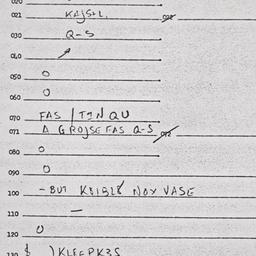 020
021 KAJSEL 022
030 Q-S
040
050 O
060 O
070 FAS / TIN QU
071 A GROJSE FAS Q-S 072
080 O
090 O
100 - BUT NOX VASE
110 —
120 O
130